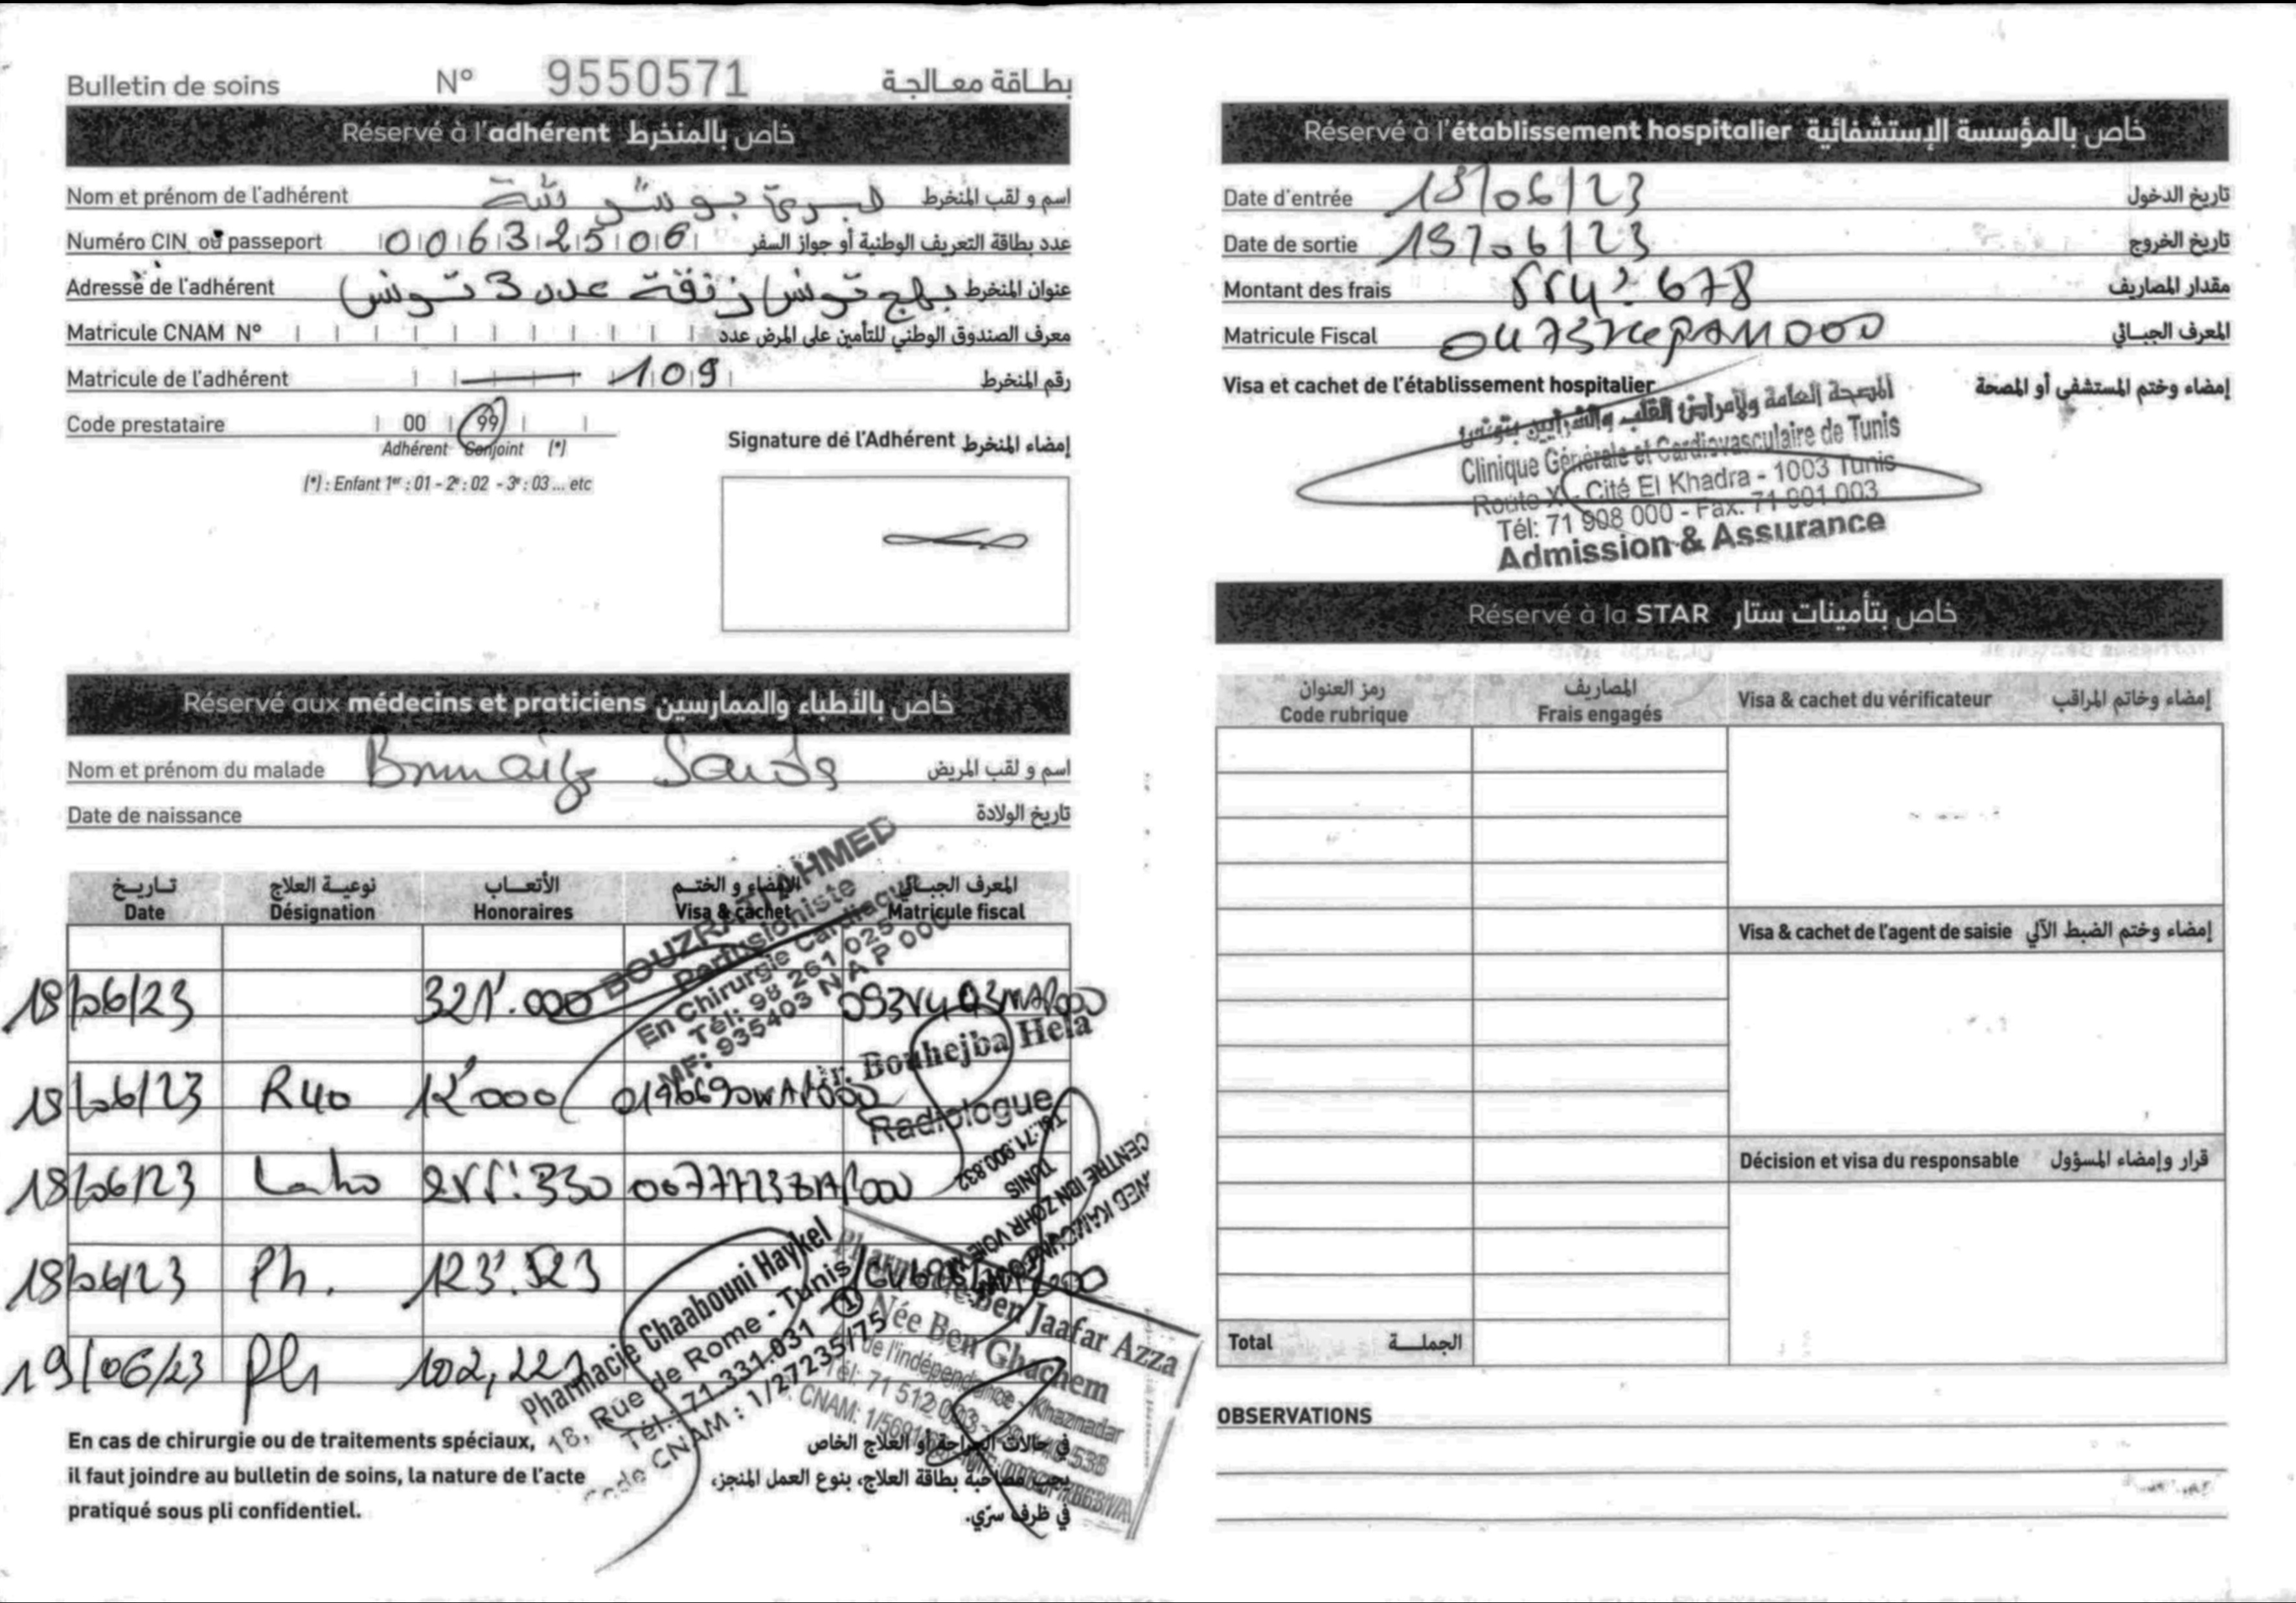 Bulletin de soins N° 9550571 بطاقة معالجة
Réservé à l'adhérent خاص بالمنخرط
Nom et prénom de l'adhérent اسم و لقب المنخرط
Numéro CIN ou passeport 00632506 عدد بطاقة التعريف الوطنية أو جواز السفر
Adresse de l'adhérent نهج تونس زنقة عدد 3 تونس عنوان المنخرط
Matricule CNAM N° معرف الصندوق الوطني للتأمين على المرض عدد
Matricule de l'adhérent 109 رقم المنخرط
Code prestataire 00 99
Adhérent Conjoint (*)
(*) : Enfant 1er : 01 - 2e : 02 - 3e : 03 ... etc
Signature de l'Adhérent إمضاء المنخرط
Réservé aux médecins et praticiens خاص بالأطباء والممارسين
Nom et prénom du malade اسم و لقب المريض
Date de naissance تاريخ الولادة
تاريخ نوعية العلاج الأتعاب الإمضاء و الختم المعرف الجبائي
Date Désignation Honoraires Visa & cachet Matricule fiscal
BOUZRATI AHMED
Perfusioniste
En Chirurgie Cardiaque
Tél: 98 261 025
MF: 935403 N A P 000
18/06/23 321'.000
Dr. Bouhejba Hela
Radiologue
18/06/23 R40 12'000
TUNIS
CENTRE IBN ZOHR
18/06/23 Labo
18/06/23 Ph. 123'.523
19/06/23 Ph
Pharmacie Chaabouni Haykel
18, Rue de Rome - Tunis
Tél.: 71.331.031
Code CNAM : 1/27235/75
Ben Jaafar Azza
Née Ben Ghachem
de l'indépendance - Khaznadar
En cas de chirurgie ou de traitements spéciaux,
il faut joindre au bulletin de soins, la nature de l'acte
pratiqué sous pli confidentiel.
في حالات الجراحة أو العلاج الخاص
يجب مصاحبة بطاقة العلاج، بنوع العمل المنجز،
في ظرف سرّي.
Réservé à l'établissement hospitalier خاص بالمؤسسة الإستشفائية
Date d'entrée تاريخ الدخول
Date de sortie تاريخ الخروج
Montant des frais مقدار المصاريف
Matricule Fiscal المعرف الجبائي
Visa et cachet de l'établissement hospitalier إمضاء وختم المستشفى أو المصحة
المصحة العامة ولأمراض القلب والشرايين بتونس
Clinique Générale et Cardiovasculaire de Tunis
Route X - Cité El Khadra - 1003 Tunis
Tél: 71 908 000 - Fax: 71 901 003
Admission & Assurance
Réservé à la STAR خاص بتأمينات ستار
رمز العنوان المصاريف
Code rubrique Frais engagés Visa & cachet du vérificateur إمضاء وخاتم المراقب
Visa & cachet de l'agent de saisie إمضاء وختم الضبط الآلي
Décision et visa du responsable قرار وإمضاء المسؤول
Total الجملة
OBSERVATIONS